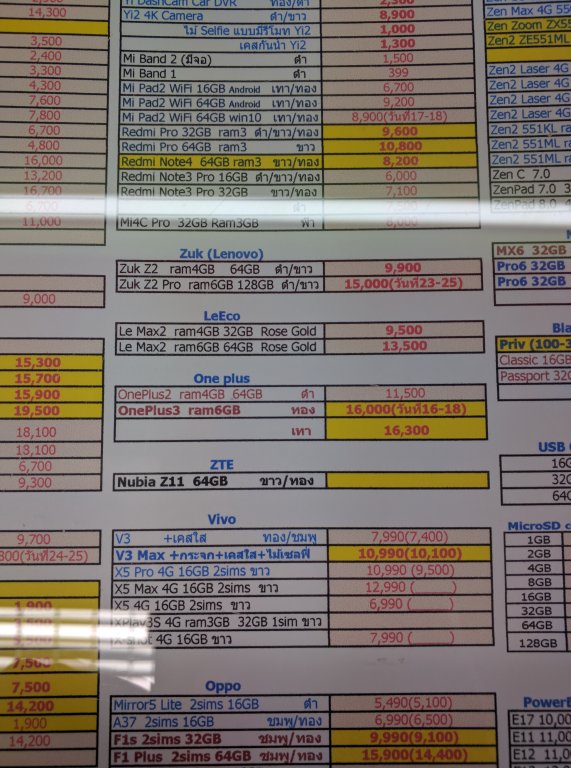 14,300
3,500
2,400
3,300
4,300
7,600
7,800
6,700
4,800
16,000
13,200
16,700
6,700
11,000
9,000
15,300
15,700
15,900
19,500
18,100
18,100
6,700
9,300
9,700
800(วันที่24-25)
1,900
7,500
7,500
14,200
1,900
14,200
Yi DashCam Car DVR เทา/ทอง 2,300
Yi2 4K Camera ดำ/ขาว 8,900
ไม้ Selfie แบบมีรีโมท Yi2 1,000
เคสกันน้ำ Yi2 1,300
Mi Band 2 (มีจอ) ดำ 1,500
Mi Band 1 ดำ 399
Mi Pad2 WiFi 16GB Android เทา/ทอง 6,700
Mi Pad2 WiFi 64GB Android เทา/ทอง 9,200
Mi Pad2 WiFi 64GB win10 เทา/ทอง 8,900(วันที่17-18)
Redmi Pro 32GB ram3 ดำ/ขาว/ทอง 9,600
Redmi Pro 64GB ram3 ขาว 10,800
Redmi Note4 64GB ram3 ขาว/ทอง 8,200
Redmi Note3 Pro 16GB ดำ/ขาว/ทอง 6,000
Redmi Note3 Pro 32GB ขาว/ทอง 7,100
ดำ
Mi4C Pro 32GB Ram3GB ฟ้า 8,000
Zuk (Lenovo)
Zuk Z2 ram4GB 64GB ดำ/ขาว 9,900
Zuk Z2 Pro ram6GB 128GB ดำ/ขาว 15,000(วันที่23-25)
LeEco
Le Max2 ram4GB 32GB Rose Gold 9,500
Le Max2 ram6GB 64GB Rose Gold 13,500
One plus
OnePlus2 ram4GB 64GB ดำ 11,500
OnePlus3 ram6GB ทอง 16,000(วันที่16-18)
เทา 16,300
ZTE
Nubia Z11 64GB ขาว/ทอง
Vivo
V3 +เคสใส ทอง/ชมพู 7,990(7,400)
V3 Max +กระจก+เคสใส+ไม้เซลฟี่ 10,990(10,100)
X5 Pro 4G 16GB 2sims ขาว 10,990 (9,500)
X5 Max 4G 16GB 2sims ขาว 12,990 (____)
X5 4G 16GB 2sims ขาว 6,990 (____)
XPlay3S 4G ram3GB 32GB 1sim ขาว
X-shot 4G 16GB ขาว 7,990 (____)
Oppo
Mirror5 Lite 2sims 16GB ดำ 5,490(5,100)
A37 2sims 16GB ชมพู/ทอง 6,990(6,500)
F1s 2sims 32GB ชมพู/ทอง 9,990(9,100)
F1 Plus 2sims 64GB ชมพู/ทอง 15,900(14,400)
Zen Max 4G 55
Zen Zoom ZX55
Zen2 ZE551ML
Zen2 Laser 4G
Zen2 Laser 4G
Zen2 Laser 4G
Zen2 Laser 4G
Zen2 551KL ra
Zen2 551ML ra
Zen2 551ML ra
Zen C 7.0
ZenPad 7.0 3
ZenPad 8.0 4
MX6 32GB
Pro6 32GB
Pro6 32GB
Bla
Priv (100-3
Classic 16GB
Passport 32G
USB
16G
32G
64G
MicroSD c
1GB
2GB
4GB
8GB
16GB
32GB
64GB
128GB
PowerB
E17 10,00
E11 11,0
E12 11,0